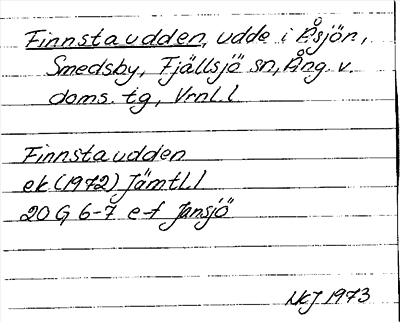 Finnstaudden, udde i Åsjön,
Smedsby, Fjällsjö sn, Ång. v.
doms. tg, Vrnl. l
Finnstaudden
ek (1972) Jämtl. l
20 G 6-7 e-f Jansjö
NKJ 1973